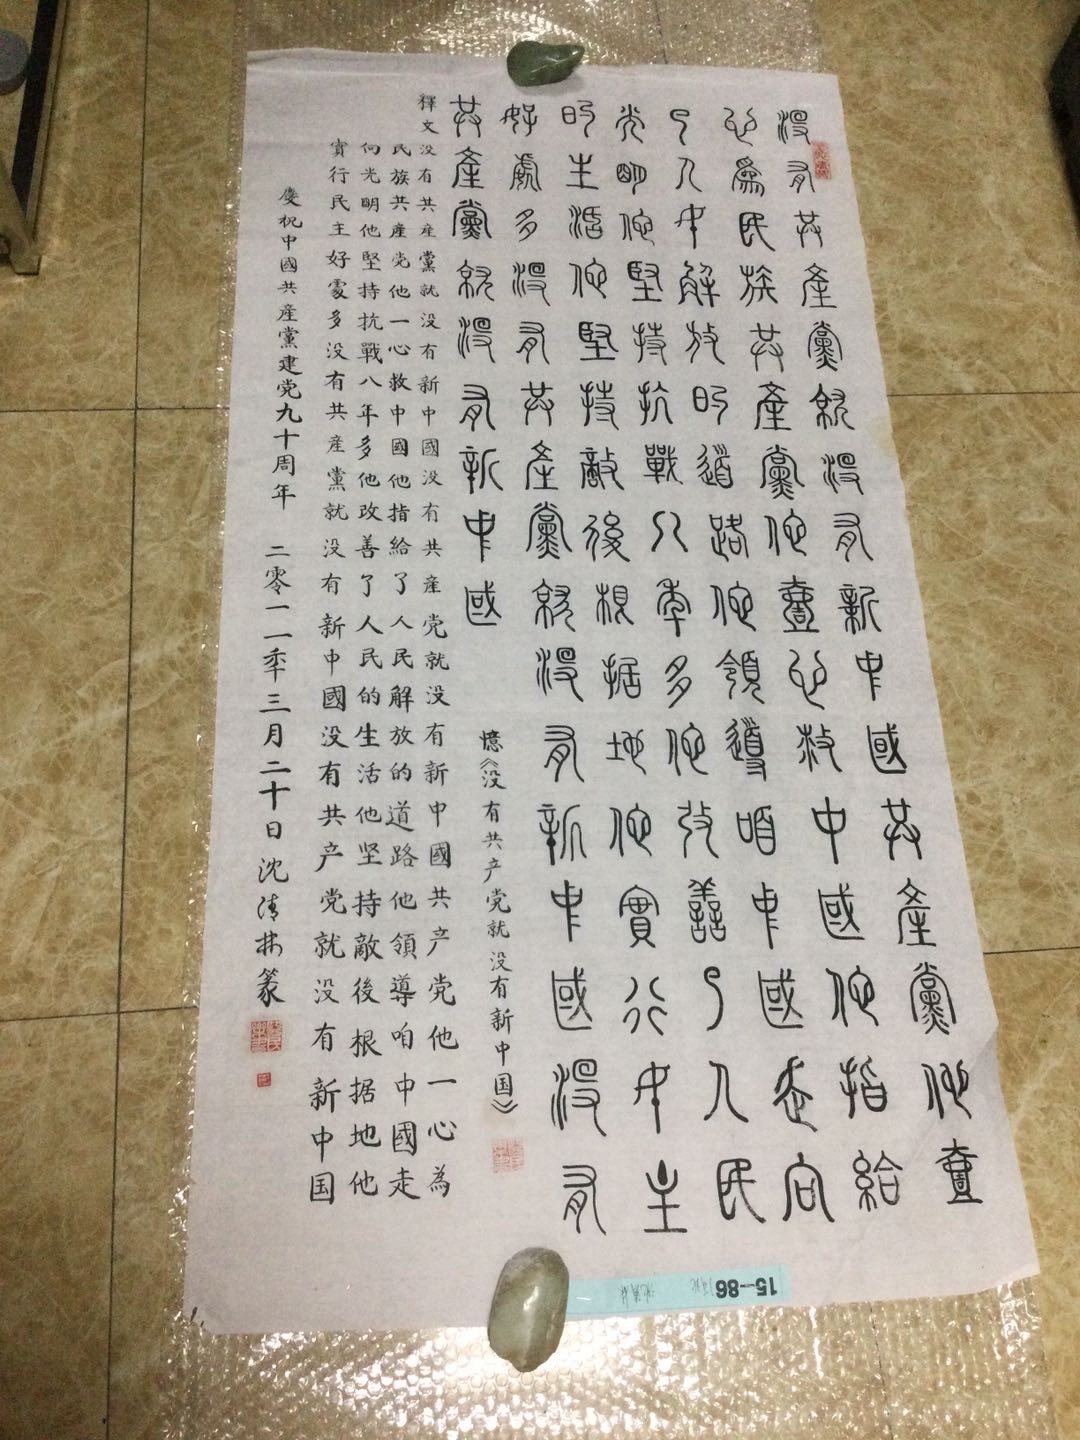 没有共產黨就没有新中國共產黨他壹
心為民族共產黨他壹心救中國他指給
了人民解放的道路他領導咱中國走向
光明他堅持抗戰八年多他改善了人民
的生活他堅持敵後根据地他實行民主
好處多没有共產黨就没有新中國没有
共產黨就没有新中國
憶《没有共产党就没有新中国》
釋文 没有共産黨就没有新中國没有共産党就没有新中國共产党他一心為
民族共産党他一心救中國他指給了人民解放的道路他領導咱中國走
向光明他堅持抗戰八年多他改善了人民的生活他坚持敵後根据地他
實行民主好處多没有共産黨就没有新中國没有共产党就没有新中国
慶祝中國共産黨建党九十周年 二零一一年三月二十日沈清林篆
15-86